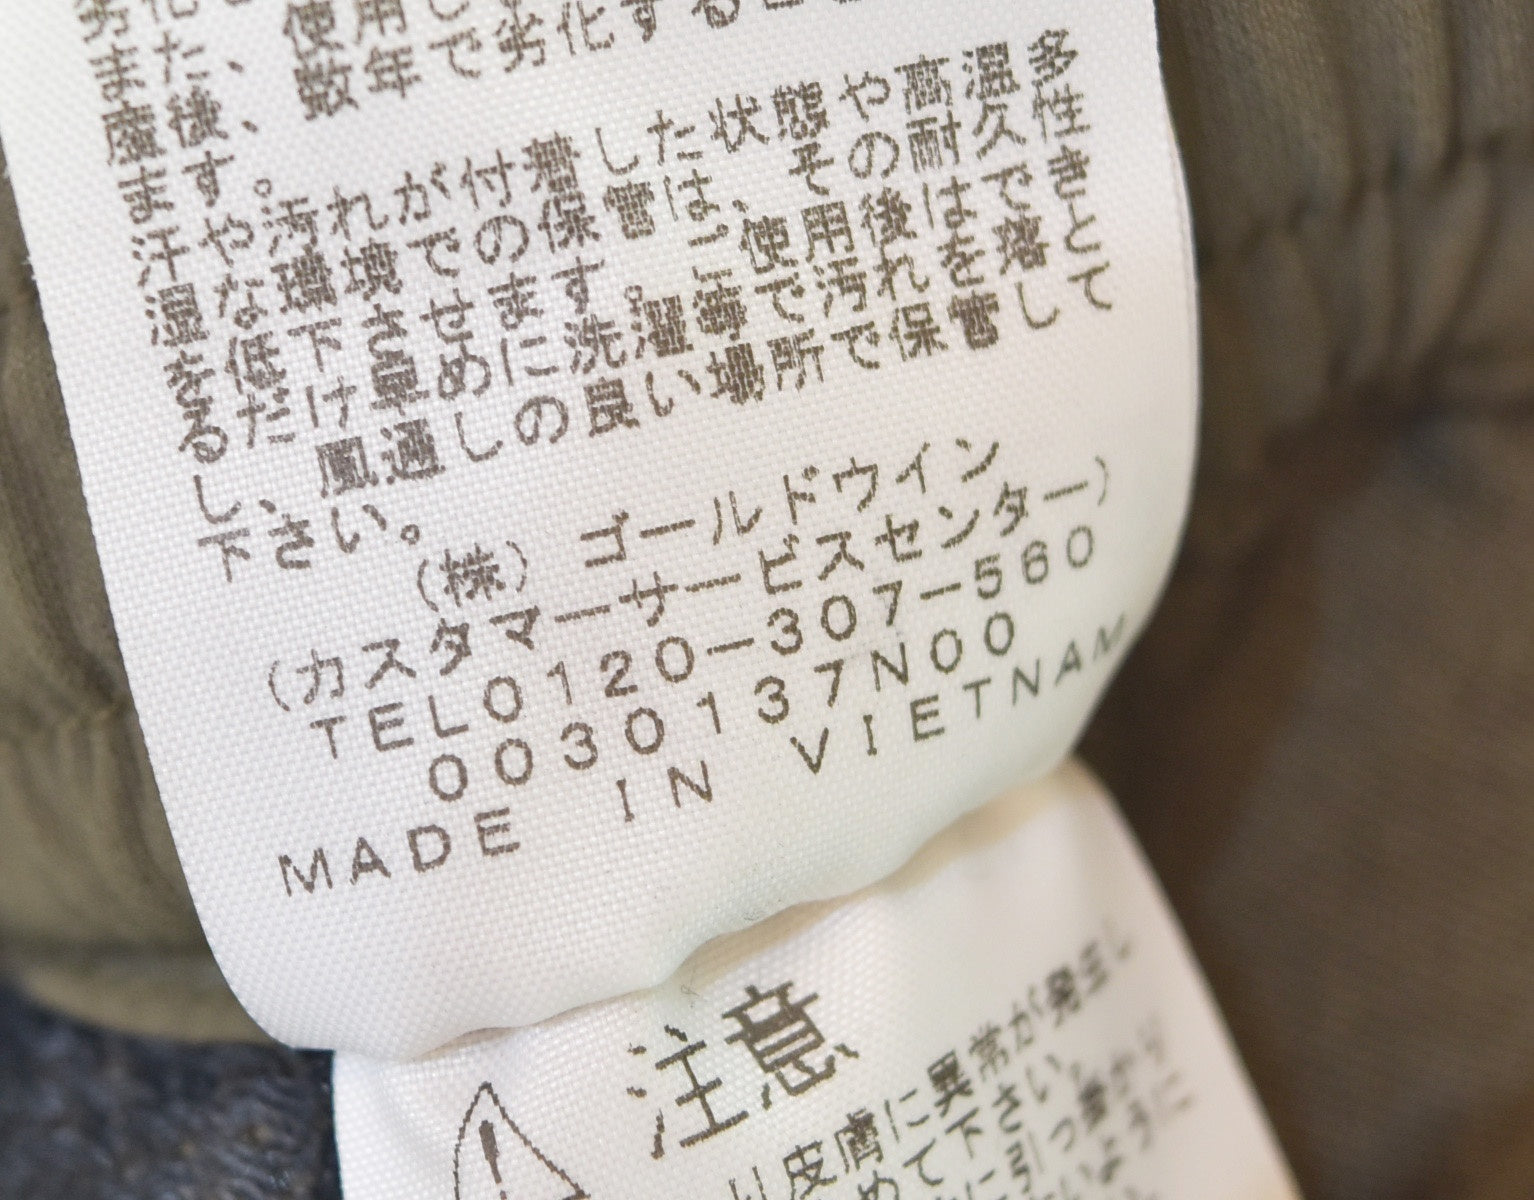 数年で劣化する
ます。
汗や汚れが付着した状態や高温多
湿な環境での保管は、その耐久性
を低下させます。ご使用後はでき
るだけ早めに洗濯等で汚れを落と
し、風通しの良い場所で保管して
下さい。
(株) ゴールドウイン
(カスタマーサービスセンター)
TEL0120-307-560
0030137N00
MADE IN VIETNAM
注意
皮膚に異常が発生し
めて下さい。